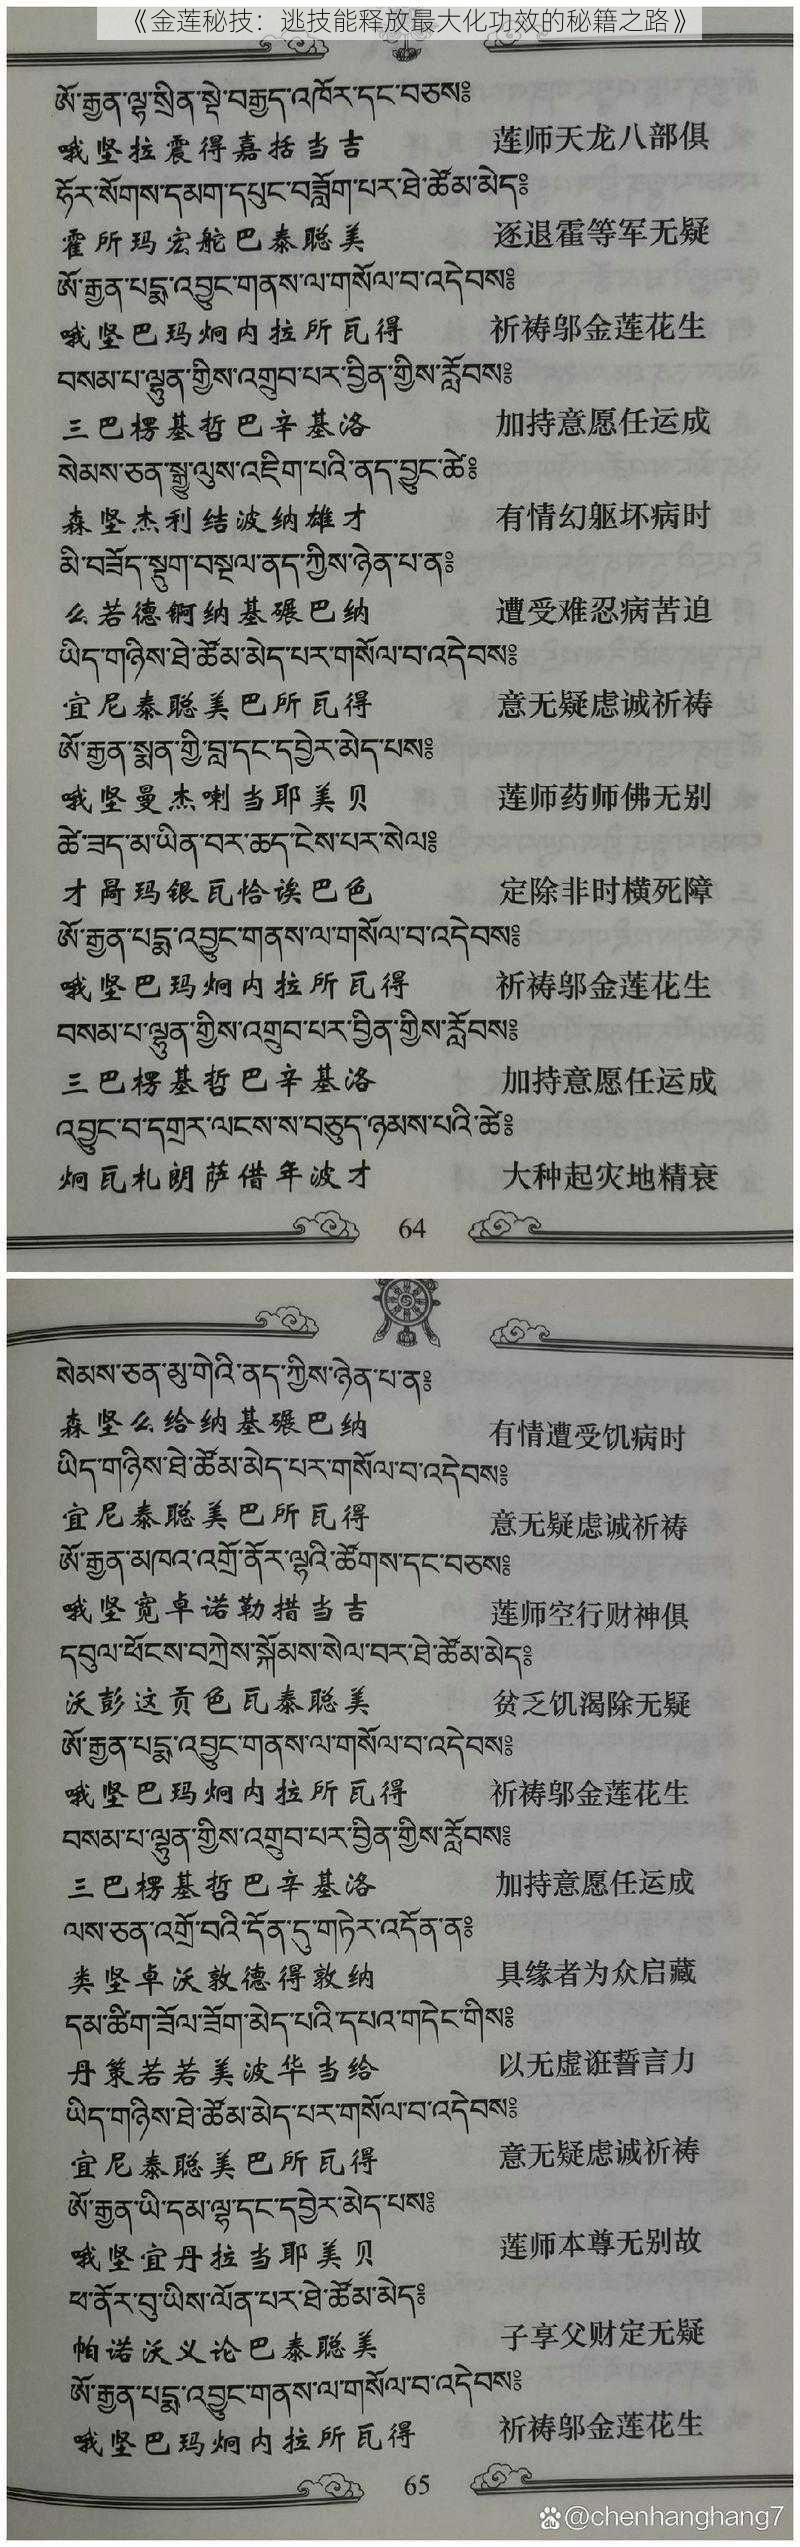 《金莲秘技：逃技能释放最大化功效的秘籍之路》
ཨོ་རྒྱན་ལྷ་སྲིན་སྡེ་བརྒྱད་འཁོར་དང་བཅས༔
哦坚拉震得嘉括当吉 莲师天龙八部俱
ཧོར་སོགས་དམག་དཔུང་བཟློག་པར་ཐེ་ཚོམ་མེད༔
霍所玛宏舵巴泰聪美 逐退霍等军无疑
ཨོ་རྒྱན་པདྨ་འབྱུང་གནས་ལ་གསོལ་བ་འདེབས༔
哦坚巴玛炯内拉所瓦得 祈祷邬金莲花生
བསམ་པ་ལྷུན་གྱིས་འགྲུབ་པར་བྱིན་གྱིས་རློབས༔
三巴楞基哲巴辛基洛 加持意愿任运成
སེམས་ཅན་སྒྱུ་ལུས་འཇིག་པའི་ནད་བྱུང་ཚེ༔
森坚杰利结波纳雄才 有情幻躯坏病时
མི་བཟོད་སྡུག་བསྔལ་ནད་ཀྱིས་ཉེན་པ་ན༔
么若德锕纳基碾巴纳 遭受难忍病苦迫
ཡིད་གཉིས་ཐེ་ཚོམ་མེད་པར་གསོལ་བ་འདེབས༔
宜尼泰聪美巴所瓦得 意无疑虑诚祈祷
ཨོ་རྒྱན་སྨན་གྱི་བླ་དང་དབྱེར་མེད་པས༔
哦坚曼杰喇当耶美贝 莲师药师佛无别
ཚེ་ཟད་མ་ཡིན་བར་ཆད་ངེས་པར་སེལ༔
才 玛银瓦恰诶巴色 定除非时横死障
ཨོ་རྒྱན་པདྨ་འབྱུང་གནས་ལ་གསོལ་བ་འདེབས༔
哦坚巴玛炯内拉所瓦得 祈祷邬金莲花生
བསམ་པ་ལྷུན་གྱིས་འགྲུབ་པར་བྱིན་གྱིས་རློབས༔
三巴楞基哲巴辛基洛 加持意愿任运成
འབྱུང་བ་དགྲར་ལངས་ས་བཅུད་ཉམས་པའི་ཚེ༔
炯瓦札朗萨借年波才 大种起灾地精衰
64
སེམས་ཅན་མུ་གེའི་ནད་ཀྱིས་ཉེན་པ་ན༔
森坚么给纳基碾巴纳 有情遭受饥病时
ཡིད་གཉིས་ཐེ་ཚོམ་མེད་པར་གསོལ་བ་འདེབས༔
宜尼泰聪美巴所瓦得 意无疑虑诚祈祷
ཨོ་རྒྱན་མཁའ་འགྲོ་ནོར་ལྷའི་ཚོགས་དང་བཅས༔
哦坚宽卓诺勒措当吉 莲师空行财神俱
དབུལ་ཕོངས་བཀྲེས་སྐོམས་སེལ་བར་ཐེ་ཚོམ་མེད༔
沃彭这贡色瓦泰聪美 贫乏饥渴除无疑
ཨོ་རྒྱན་པདྨ་འབྱུང་གནས་ལ་གསོལ་བ་འདེབས༔
哦坚巴玛炯内拉所瓦得 祈祷邬金莲花生
བསམ་པ་ལྷུན་གྱིས་འགྲུབ་པར་བྱིན་གྱིས་རློབས༔
三巴楞基哲巴辛基洛 加持意愿任运成
ལས་ཅན་འགྲོ་བའི་དོན་དུ་གཏེར་འདོན་ན༔
类坚卓沃敦德得敦纳 具缘者为众启藏
དམ་ཚིག་ཟོལ་ཟོག་མེད་པའི་དཔའ་གདེང་གིས༔
丹策若若美波华当给 以无虚诳誓言力
ཡིད་གཉིས་ཐེ་ཚོམ་མེད་པར་གསོལ་བ་འདེབས༔
宜尼泰聪美巴所瓦得 意无疑虑诚祈祷
ཨོ་རྒྱན་ཡི་དམ་ལྷ་དང་དབྱེར་མེད་པས༔
哦坚宜丹拉当耶美贝 莲师本尊无别故
ཕ་ནོར་བུ་ཡིས་ལོན་པར་ཐེ་ཚོམ་མེད༔
帕诺沃义论巴泰聪美 子享父财定无疑
ཨོ་རྒྱན་པདྨ་འབྱུང་གནས་ལ་གསོལ་བ་འདེབས༔
哦坚巴玛炯内拉所瓦得 祈祷邬金莲花生
65
@chenhanghang7